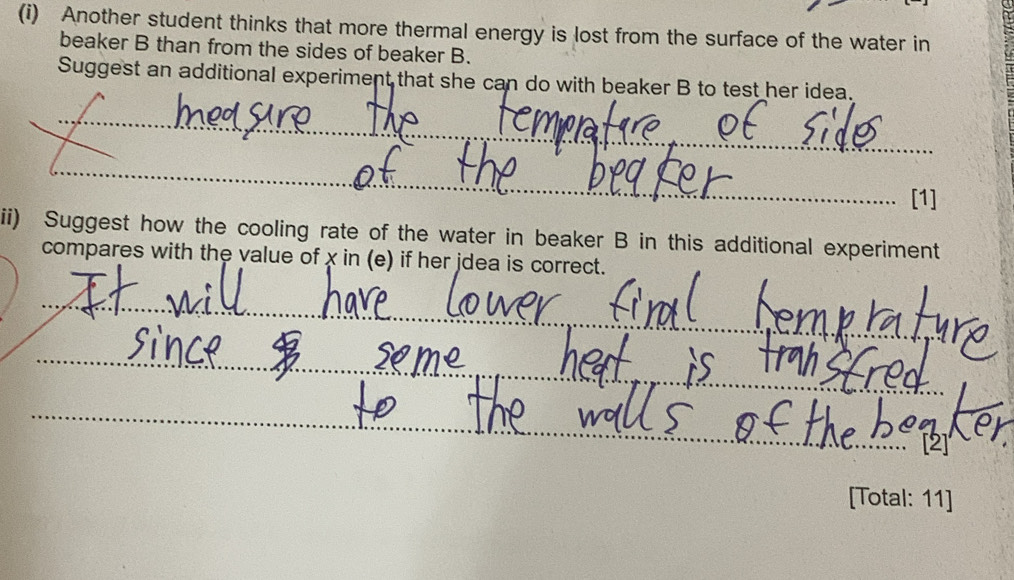 (i) Another student thinks that more thermal energy is lost from the surface of the water in
beaker B than from the sides of beaker B.
Suggest an additional experiment that she can do with beaker B to test her idea.
measure the temprature of sides
of the beaker
[1]
ii) Suggest how the cooling rate of the water in beaker B in this additional experiment
compares with the value of x in (e) if her idea is correct.
It will have lower final temprature
since some heat is transfred
to the walls of the beaker.
[2]
[Total: 11]